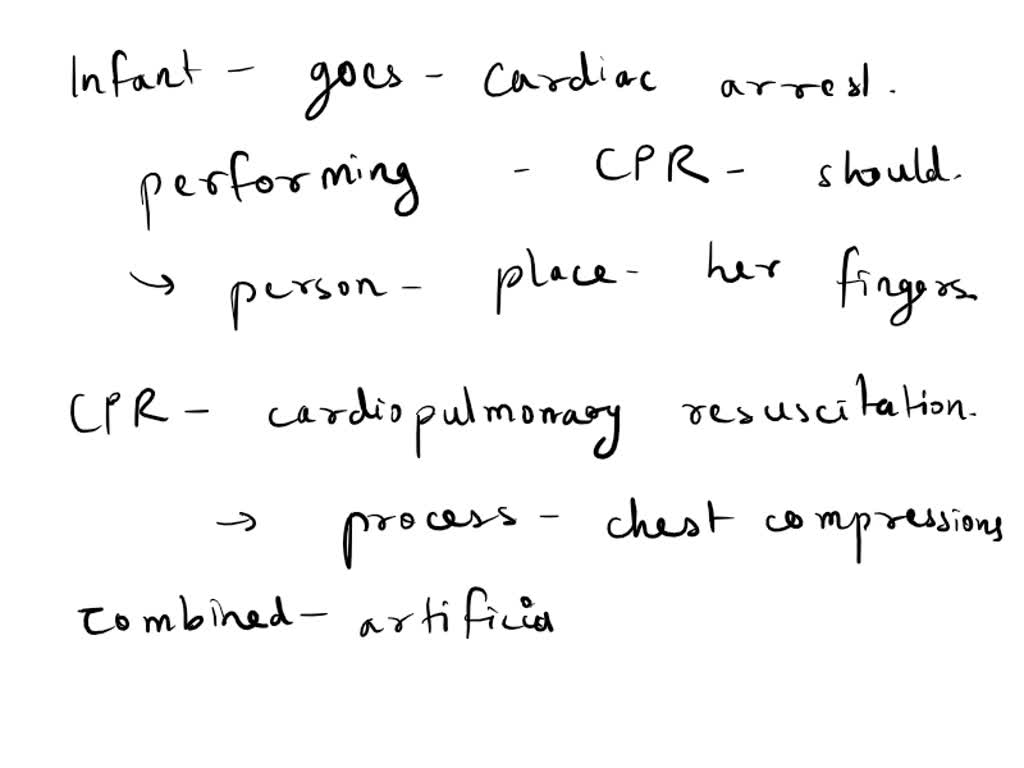 Infant - goes - cardiac arrest.
performing - CPR - should.
→ person - place - her fingers.
CPR - cardiopulmonary resuscitation.
→ process - chest compressions
combined - artificia